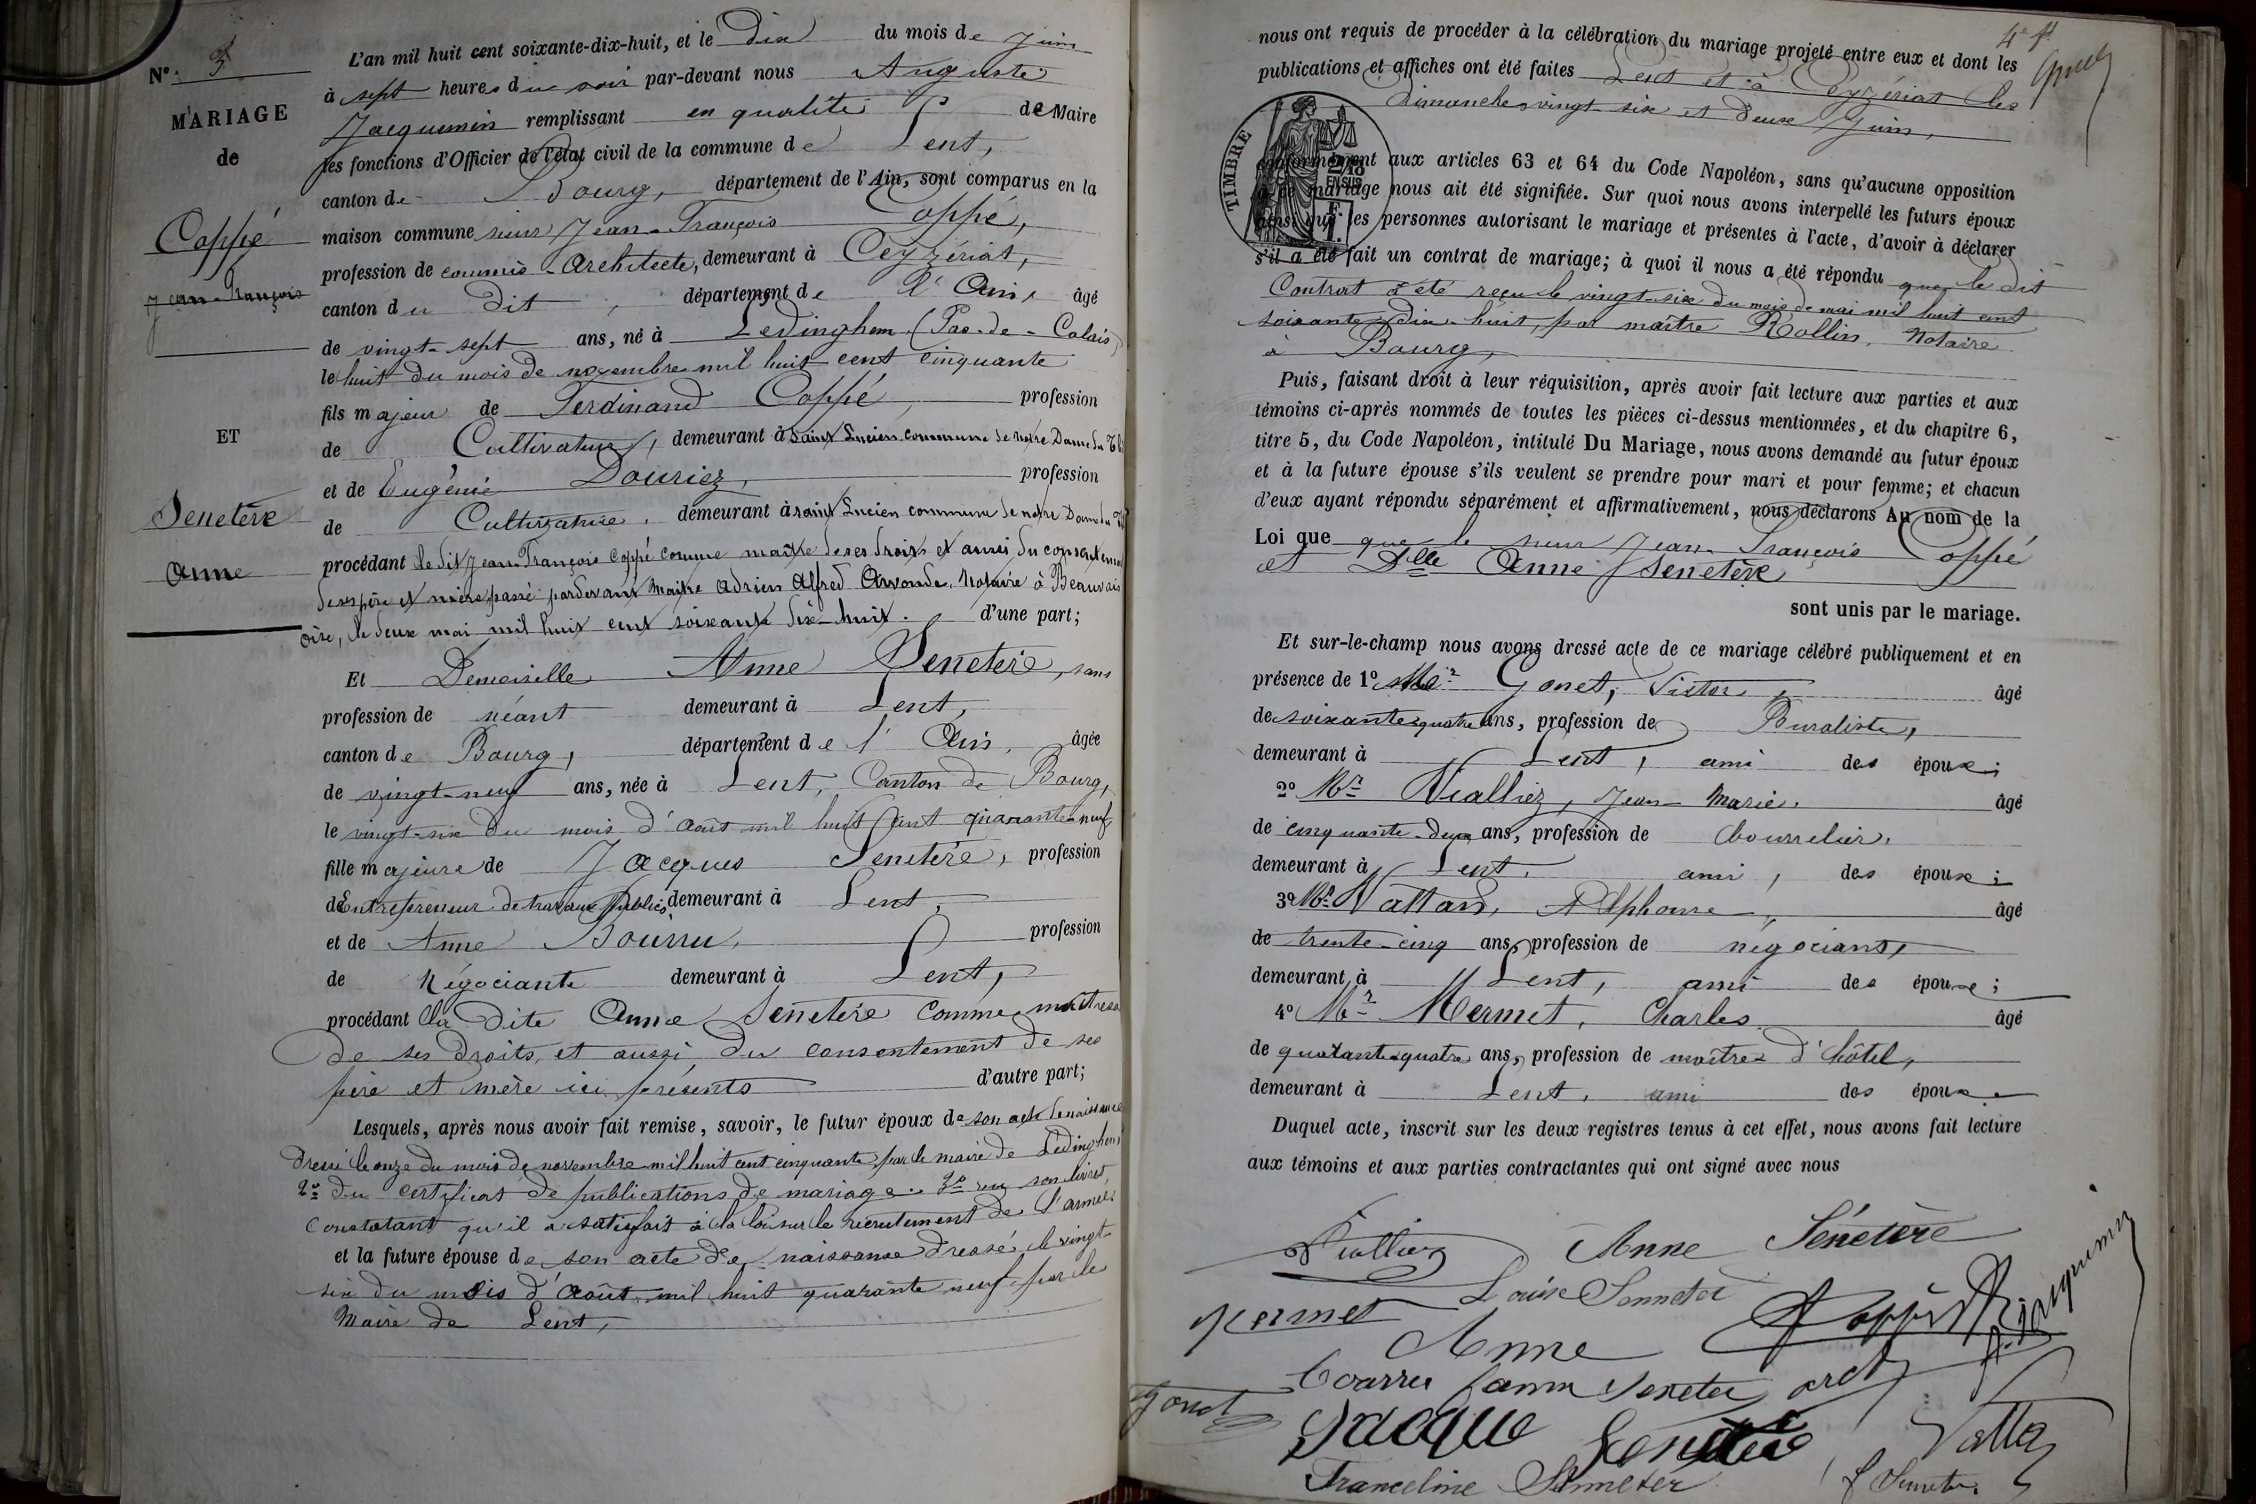 N° 3
MARIAGE
de
Coppé
Jean-François
ET
Senetère
Anne
L'an mil huit cent soixante-dix-huit, et le dix du mois de Juin
à sept heures du soir par-devant nous Auguste
Jacquemin remplissant en qualité de Maire
les fonctions d'Officier de l'état civil de la commune de Lent,
canton de Bourg, département de l'Ain, sont comparus en la
maison commune sieur Jean-François Coppé,
profession de commis-Architecte, demeurant à Ceyzériat,
canton du Dit, département de l'Ain, âgé
de vingt-sept ans, né à Ledinghem (Pas-de-Calais)
le huit du mois de novembre mil huit cent cinquante
fils majeur de Ferdinand Coppé, profession
de Cultivateur, demeurant à Saint Lucien commune de notre Dame du
et de Eugénie Douriez, profession
de Cultivatrice, demeurant à saint Lucien commune de notre Dame du
procédant le dit Jean-François Coppé comme maître de ses droits et aussi du consentement
de ses père et mère, passé pardevant Maître Adrien Alfred Notaire à Beauvais
oise, le deux mai mil huit cent soixante dix-huit. d'une part;
Et Demoiselle Anne Senetère, sans
profession de néant demeurant à Lent,
canton de Bourg, département de l'Ain, âgée
de vingt-neuf ans, née à Lent, Canton de Bourg,
le vingt-six du mois d'août mil huit cent quarante-neuf
fille majeure de Jacques Senetère, profession
de Entrepreneur de travaux publics, demeurant à Lent,
et de Anne Bourru, profession
de Négociante demeurant à Lent,
procédant la dite Anne Senetère comme maîtresse
de ses droits, et aussi du consentement de ses
père et mère ici présents d'autre part;
Lesquels, après nous avoir fait remise, savoir, le futur époux de son acte de naissance
dressé le onze du mois de novembre mil huit cent cinquante, par le maire de Ledinghem
2° du certificat de publications de mariage. 3° vu son livret
constatant qu'il a satisfait à la loi sur le recrutement de l'armée.
et la future épouse de son acte de naissance dressé, le vingt-
six du mois d'Août mil huit quarante neuf, par le
Maire de Lent,
4e ft
nous ont requis de procéder à la célébration du mariage projeté entre eux et dont les
publications et affiches ont été faites Lent et à Ceyzériat les
dimanches vingt six et deux Juin,
TIMBRE
2/10
EN SUS
conformément aux articles 63 et 64 du Code Napoléon, sans qu'aucune opposition
à ce mariage nous ait été signifiée. Sur quoi nous avons interpellé les futurs époux
ainsi que les personnes autorisant le mariage et présentes à l'acte, d'avoir à déclarer
s'il a été fait un contrat de mariage; à quoi il nous a été répondu que le dit
Contrat a été reçu le vingt-six du mois de mai mil huit cent
soixante-dix-huit, par maître Rollin, Notaire
à Bourg,
Puis, faisant droit à leur réquisition, après avoir fait lecture aux parties et aux
témoins ci-après nommés de toutes les pièces ci-dessus mentionnées, et du chapitre 6,
titre 5, du Code Napoléon, intitulé Du Mariage, nous avons demandé au futur époux
et à la future épouse s'ils veulent se prendre pour mari et pour femme; et chacun
d'eux ayant répondu séparément et affirmativement, nous déclarons Au nom de la
Loi que que le sieur Jean-François Coppé
et Dlle Anne Senetère
sont unis par le mariage.
Et sur-le-champ nous avons dressé acte de ce mariage célébré publiquement et en
présence de 1° Mr Gonet, Victor, âgé
de soixante-quatre ans, profession de Buraliste,
demeurant à Lent, ami des époux;
2° Mr Vialliez, Jean Marie, âgé
de cinquante-deux ans, profession de bourrelier,
demeurant à Lent, ami, des époux;
3° Mr Nattan, Alphonse, âgé
de trente-cinq ans, profession de négociant,
demeurant à Lent, ami des époux;
4° Mr Mermet, Charles âgé
de quarante-quatre ans, profession de maître d'hôtel,
demeurant à Lent, ami des époux
Duquel acte, inscrit sur les deux registres tenus à cet effet, nous avons fait lecture
aux témoins et aux parties contractantes qui ont signé avec nous
Vialliez Anne Sénetère
Louise Senneter
Mermet Coppé A. Jacquemin
Anne
Bourru fanni Seneter
Gonet
Jacque Senetere
Franceline Senneter